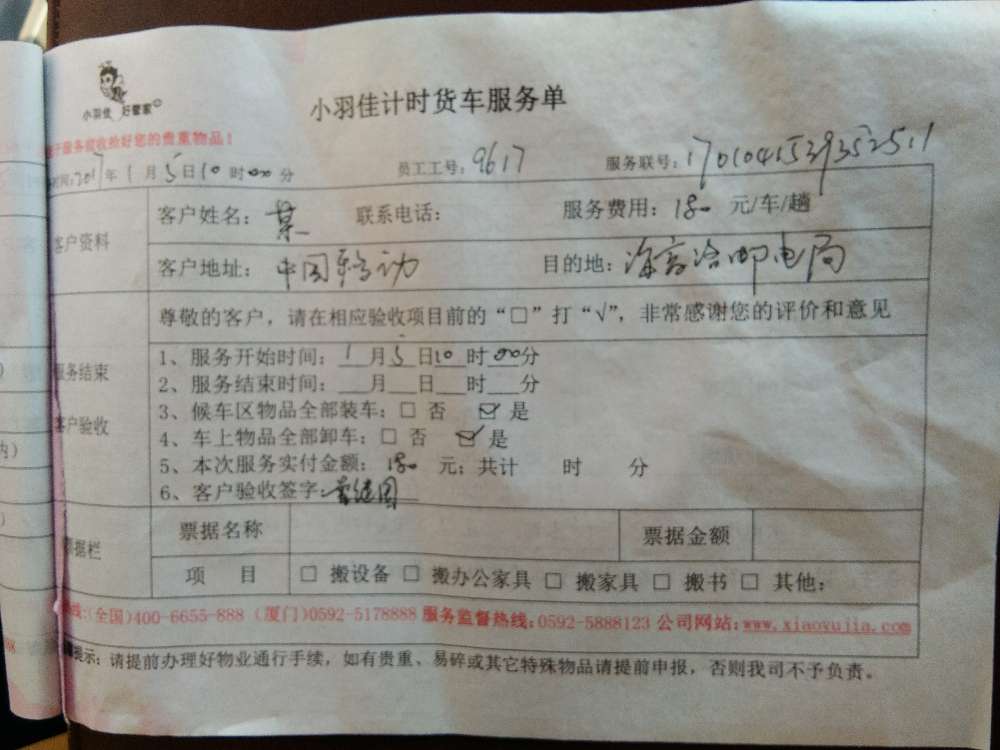 小羽佳 好管家
小羽佳计时货车服务单
服务验收捡好您的贵重物品！
时间：2017年1月5日10时00分 员工工号：9617 服务联号：1701041529352511
客户资料
客户姓名：某 联系电话： 服务费用：180 元/车/趟
客户地址：中国移动 目的地：邮电局
尊敬的客户，请在相应验收项目前的“□”打“√”，非常感谢您的评价和意见
服务结束
客户验收
1、服务开始时间：1月5日10时00分
2、服务结束时间：__月__日__时__分
3、候车区物品全部装车：□ 否 ☑ 是
4、车上物品全部卸车：□ 否 ☑ 是
5、本次服务实付金额：180 元；共计 时 分
6、客户验收签字：
票据栏
票据名称 票据金额
项 目 □ 搬设备 □ 搬办公家具 □ 搬家具 □ 搬书 □ 其他：
线：(全国)400-6655-888 (厦门)0592-5178888 服务监督热线：0592-5888123 公司网站：www.xiaoyujia.com
提示：请提前办理好物业通行手续，如有贵重、易碎或其它特殊物品请提前申报，否则我司不予负责。